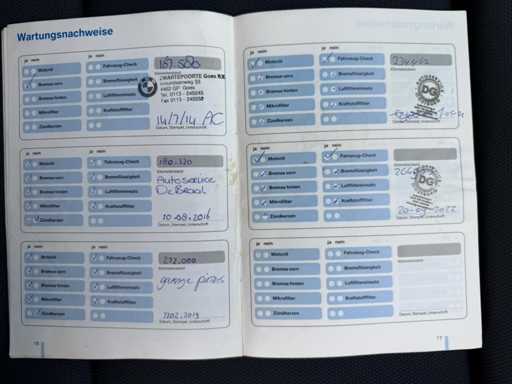 Wartungsnachweise
ja nein
ja nein
Motoröl
Fahrzeug-Check
Bremse vorn
Bremsflüssigkeit
Bremse hinten
Luftfiltereinsatz
Mikrofilter
Kraftstofffilter
Zündkerzen
ZWARTEPOORTE Goes
4462 GP Goes
Tel. 0113 -
Fax 0113 -
14/7/14 AC
Datum, Stempel, Unterschrift
ja nein
ja nein
Motoröl
Fahrzeug-Check
Bremse vorn
Bremsflüssigkeit
Bremse hinten
Luftfiltereinsatz
Mikrofilter
Kraftstofffilter
Zündkerzen
180.320
Kilometerstand
Autoservice
10-08-2016
Datum, Stempel, Unterschrift
ja nein
ja nein
Motoröl
Fahrzeug-Check
Bremse vorn
Bremsflüssigkeit
Bremse hinten
Luftfiltereinsatz
Mikrofilter
Kraftstofffilter
Zündkerzen
Kilometerstand
garage
Datum, Stempel, Unterschrift
ja nein
ja nein
Motoröl
Fahrzeug-Check
Bremse vorn
Bremsflüssigkeit
Bremse hinten
Luftfiltereinsatz
Mikrofilter
Kraftstofffilter
Zündkerzen
Kilometerstand
DG
ja nein
ja nein
Motoröl
Fahrzeug-Check
Bremse vorn
Bremsflüssigkeit
Bremse hinten
Luftfiltereinsatz
Mikrofilter
Kraftstofffilter
Zündkerzen
DG
Datum, Stempel, Unterschrift
ja nein
ja nein
Motoröl
Fahrzeug-Check
Bremse vorn
Bremsflüssigkeit
Bremse hinten
Luftfiltereinsatz
Mikrofilter
Kraftstofffilter
Zündkerzen
Kilometerstand
Datum, Stempel, Unterschrift
16
17